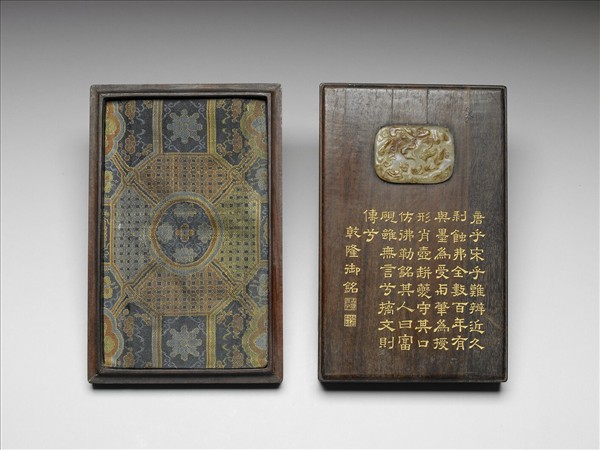 唐乎宋乎難辨近久
刓蝕弗全數百年有
與墨為受与筆為授
形肖壺缾夔守其口
仿彿勒銘其人曰富
雖無言兮摛文則
傳兮
乾隆御銘